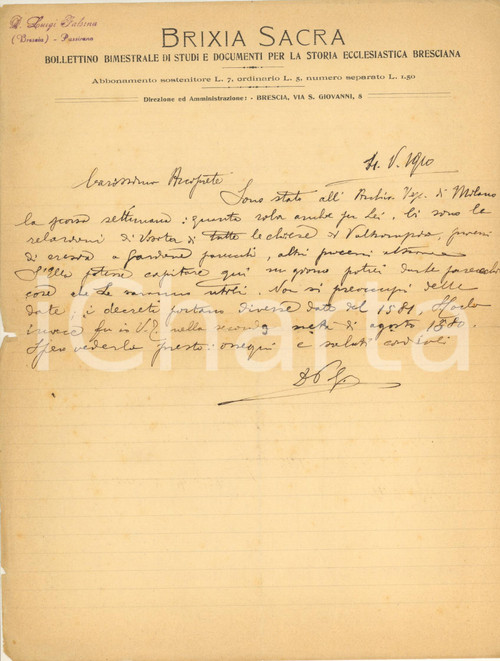 D. Luigi Falsina
(Brescia) - Bassano
BRIXIA SACRA
BOLLETTINO BIMESTRALE DI STUDI E DOCUMENTI PER LA STORIA ECCLESIASTICA BRESCIANA
Abbonamento sostenitore L. 7, ordinario L. 5, numero separato L. 1.50
Direzione ed Amministrazione: - BRESCIA, VIA S. GIOVANNI, 8
V. 1910
Carissimo Arciprete
Sono stato all' Archiv. di Milano
la scorsa settimana: quanta roba anche per Lei. Ci sono le
relazioni di Visita di tutte le chiese di Valtrompia, processi
di eresia a Gardone, altri processi
S'Ella potesse capitare qui un giorno potrei darle parecchie
cose che Le saranno utili. Non si preoccupi delle
date: i decreti portano diverse date del 1581, S. Carlo
invece fu in V. nella seconda metà di agosto 1580.
Spero vederla presto: ossequi e saluti cordiali
iCharta